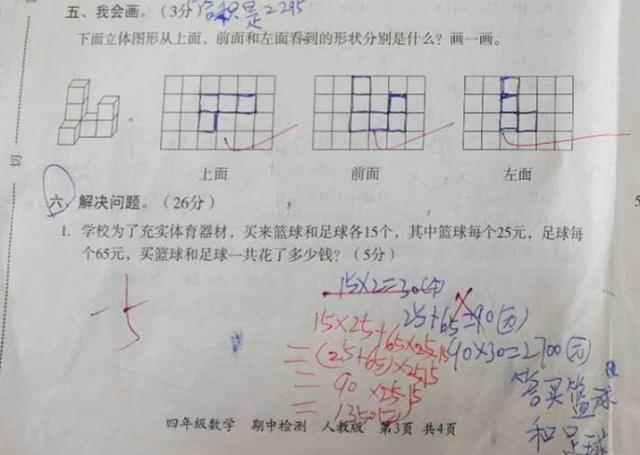 五、我会画。（3分） 积是2295
下面立体图形从上面、前面和左面看到的形状分别是什么？画一画。
上面 前面 左面
六、解决问题。（26分）
1. 学校为了充实体育器材，买来篮球和足球各15个，其中篮球每个25元，足球每
个65元，买篮球和足球一共花了多少钱？（5分）
-5
15×2=30(个)
25+65=90(元)
90×30=2700(元)
答买篮球
和足球
15×25+65×15
=(25+65)×15
=90×15
=1350(元)
四年级数学 期中检测 人教版 第3页 共4页